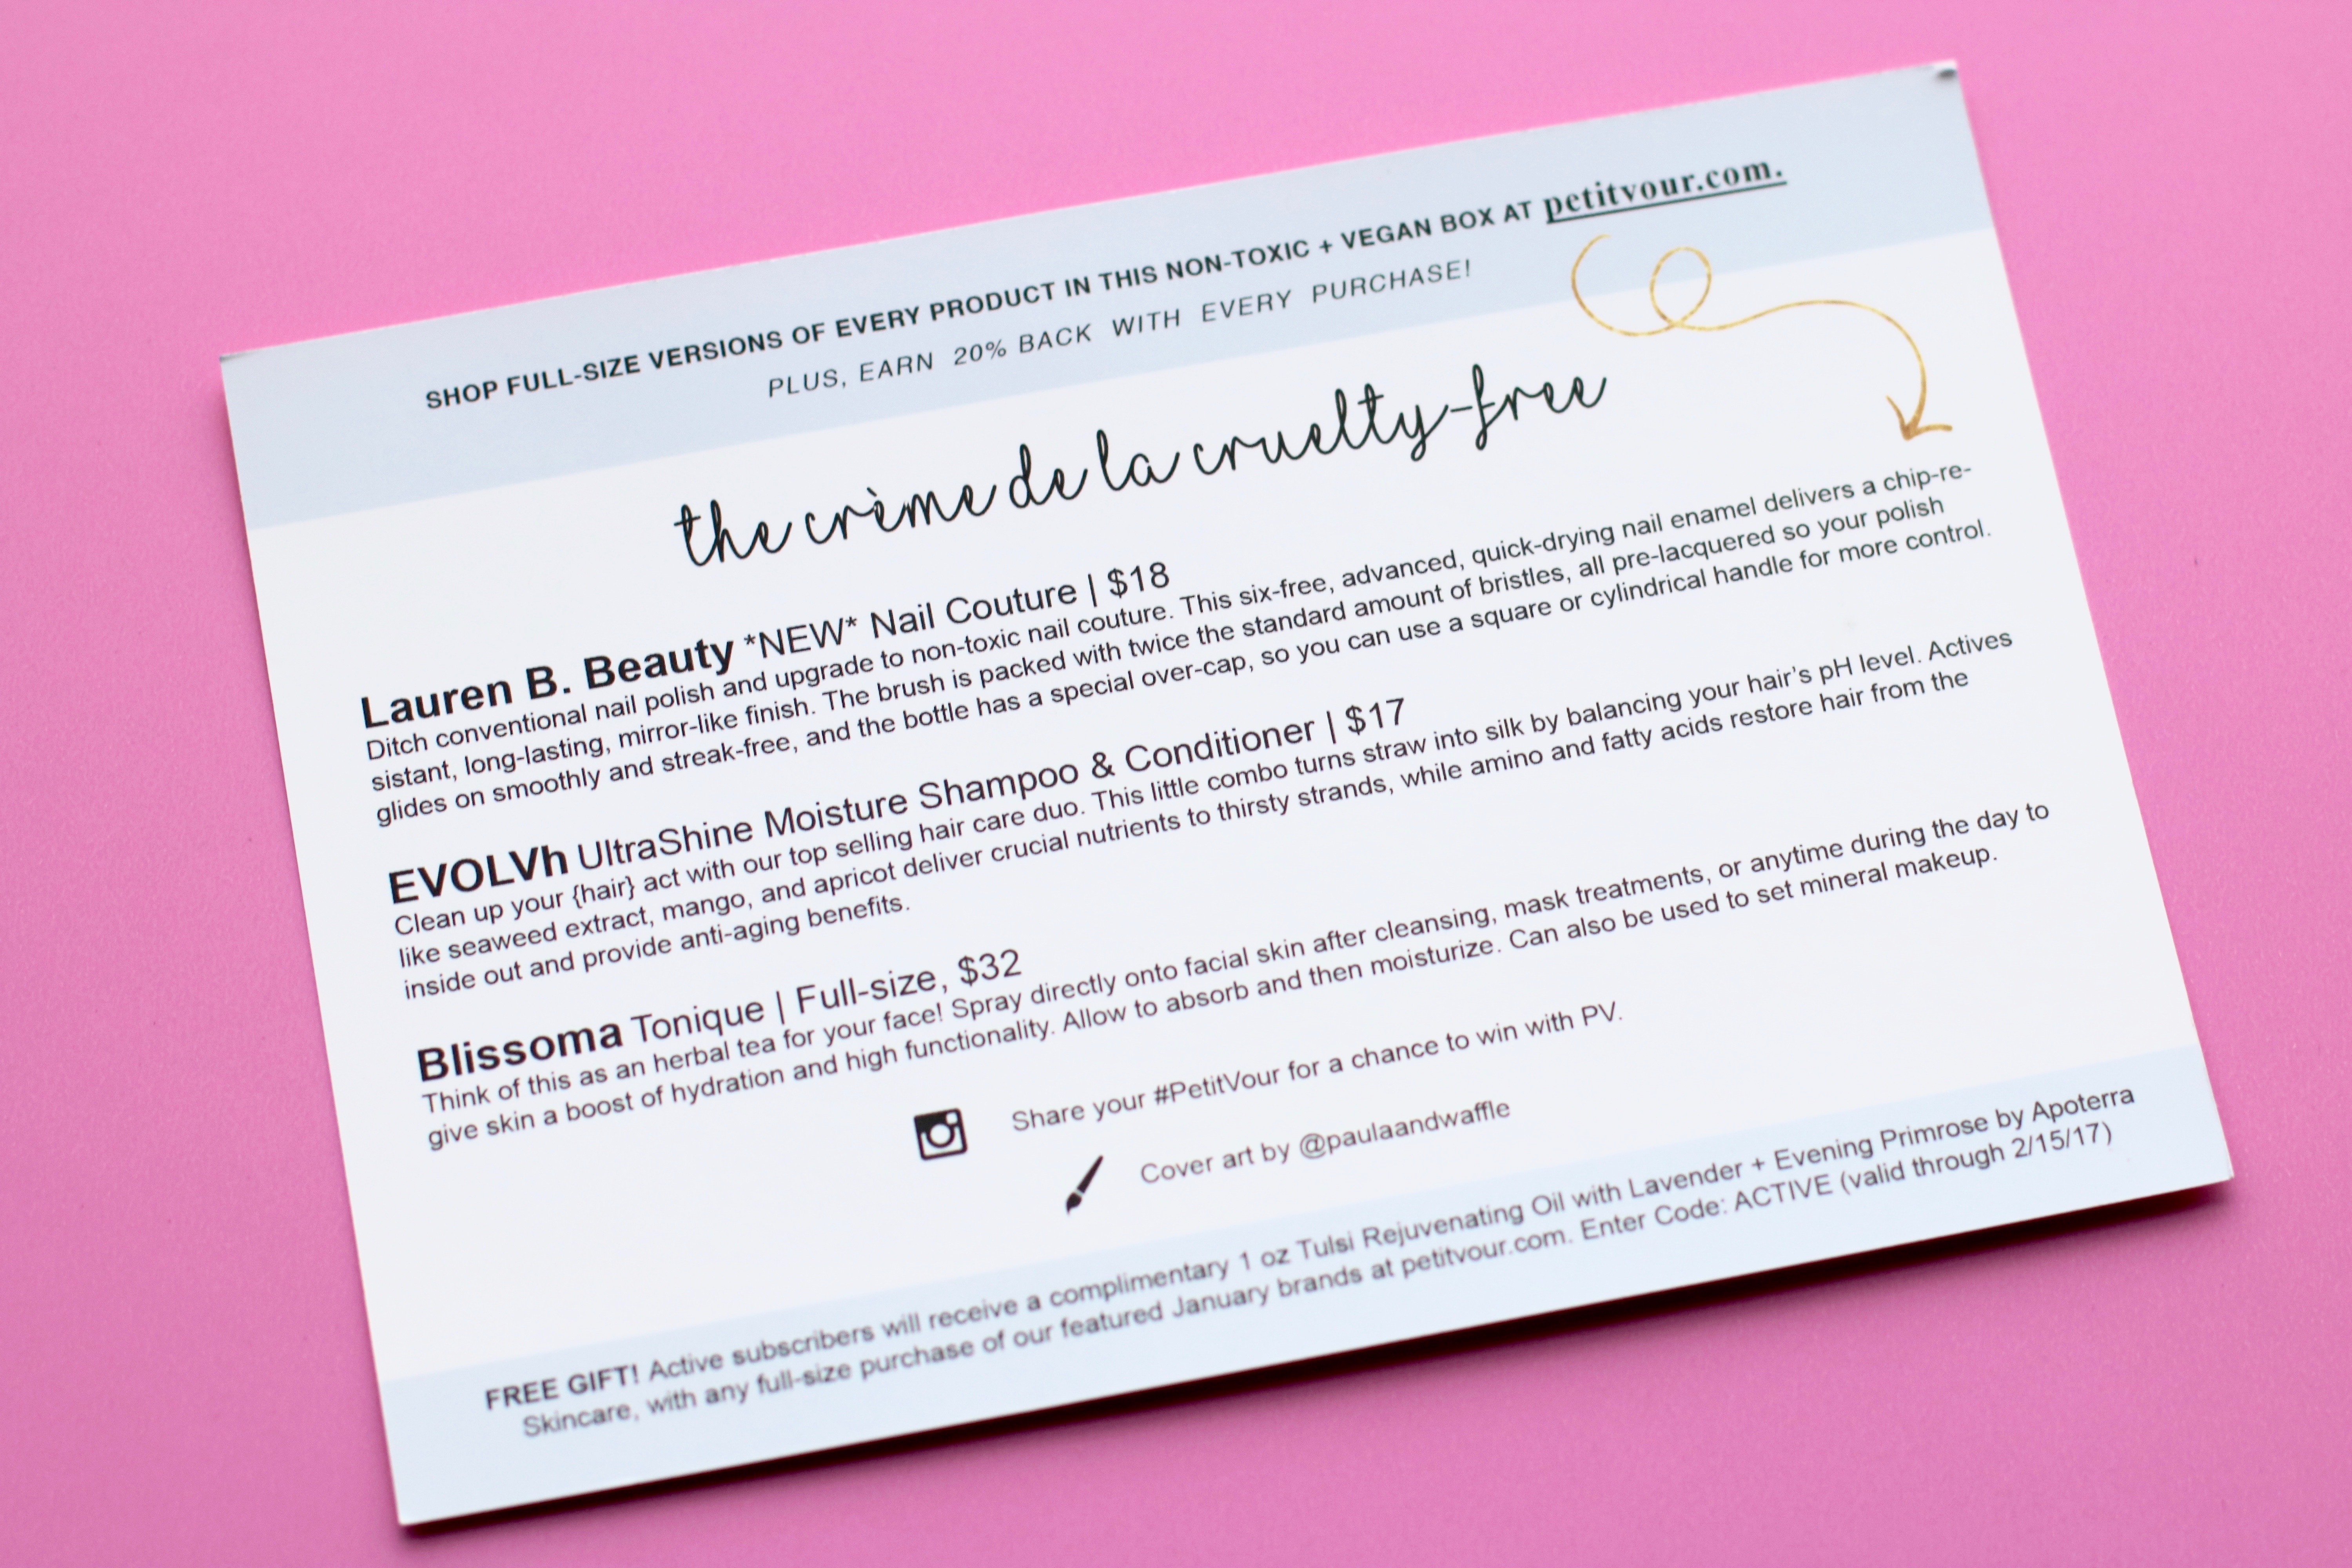 SHOP FULL-SIZE VERSIONS OF EVERY PRODUCT IN THIS NON-TOXIC + VEGAN BOX AT petitvour.com.
PLUS, EARN 20% BACK WITH EVERY PURCHASE!
the crème de la cruelty-free
Lauren B. Beauty *NEW* Nail Couture | $18
Ditch conventional nail polish and upgrade to non-toxic nail couture. This six-free, advanced, quick-drying nail enamel delivers a chip-re-
sistant, long-lasting, mirror-like finish. The brush is packed with twice the standard amount of bristles, all pre-lacquered so your polish
glides on smoothly and streak-free, and the bottle has a special over-cap, so you can use a square or cylindrical handle for more control.
EVOLVh UltraShine Moisture Shampoo & Conditioner | $17
Clean up your {hair} act with our top selling hair care duo. This little combo turns straw into silk by balancing your hair's pH level. Actives
like seaweed extract, mango, and apricot deliver crucial nutrients to thirsty strands, while amino and fatty acids restore hair from the
inside out and provide anti-aging benefits.
Blissoma Tonique | Full-size, $32
Think of this as an herbal tea for your face! Spray directly onto facial skin after cleansing, mask treatments, or anytime during the day to
give skin a boost of hydration and high functionality. Allow to absorb and then moisturize. Can also be used to set mineral makeup.
Share your #PetitVour for a chance to win with PV.
Cover art by @paulaandwaffle
FREE GIFT! Active subscribers will receive a complimentary 1 oz Tulsi Rejuvenating Oil with Lavender + Evening Primrose by Apoterra
Skincare, with any full-size purchase of our featured January brands at petitvour.com. Enter Code: ACTIVE (valid through 2/15/17)